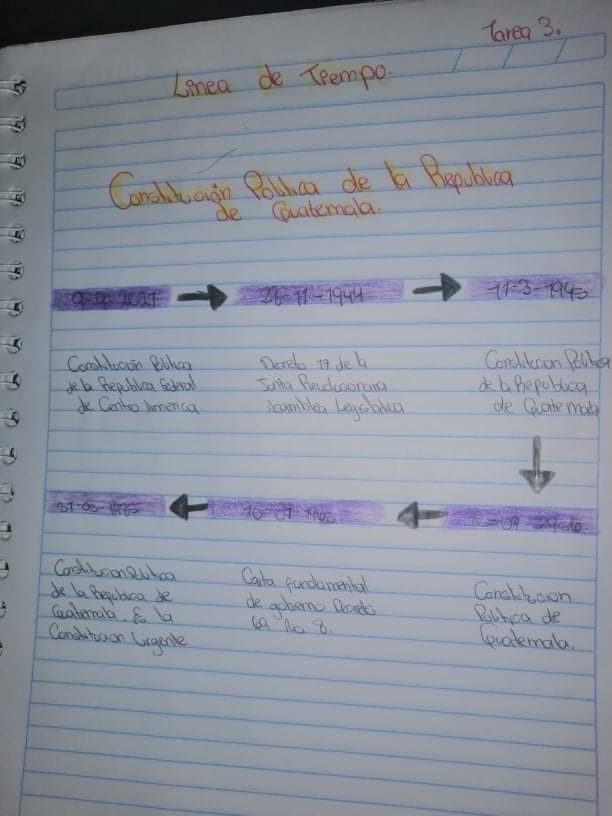 Tarea 3.
Linea de Tiempo.
Constitución Politica de la Republica
de Guatemala.
9-9-2021
26-11-1944
11-3-1945
Constitución Politica
de la Republica federal
de Centro America.
Decreto 17 de la
Junta Revolucionaria
Asamblea Legislativa
Constitucion Politica
de la Republica
de Guatemala
31-05-1985
10-01-1965
Constitucion Politica
de la Republica de
Guatemala. Es la
Constitucion Urgente
Carta fundamental
de gobierno Decreto
No 8
Constitucion
Politica de
Guatemala.